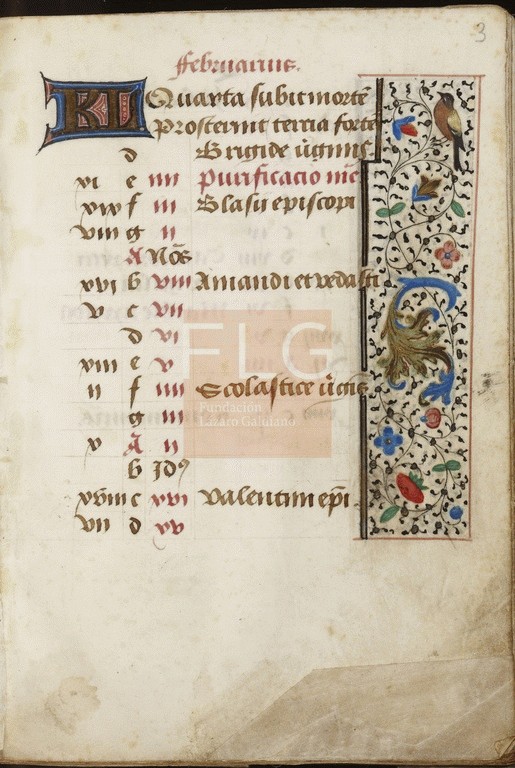 3
februarius.
KL Quarta subit mortē
Prosternit tercia fortē
d Brigide ūgīnis
xi e iiii Purificacio
xix f iii Blasii episcopi
viii g ii
A Noā
xvi b viii Amandi et vedasti
v c vii
d vi
xiii e v
ii f iiii Scolastice ūgīs
g iii
x A ii
b Idꝰ
xviii c xvi Valentini ep̄i
vii d xv
FLG
Fundación
Lázaro Galdiano